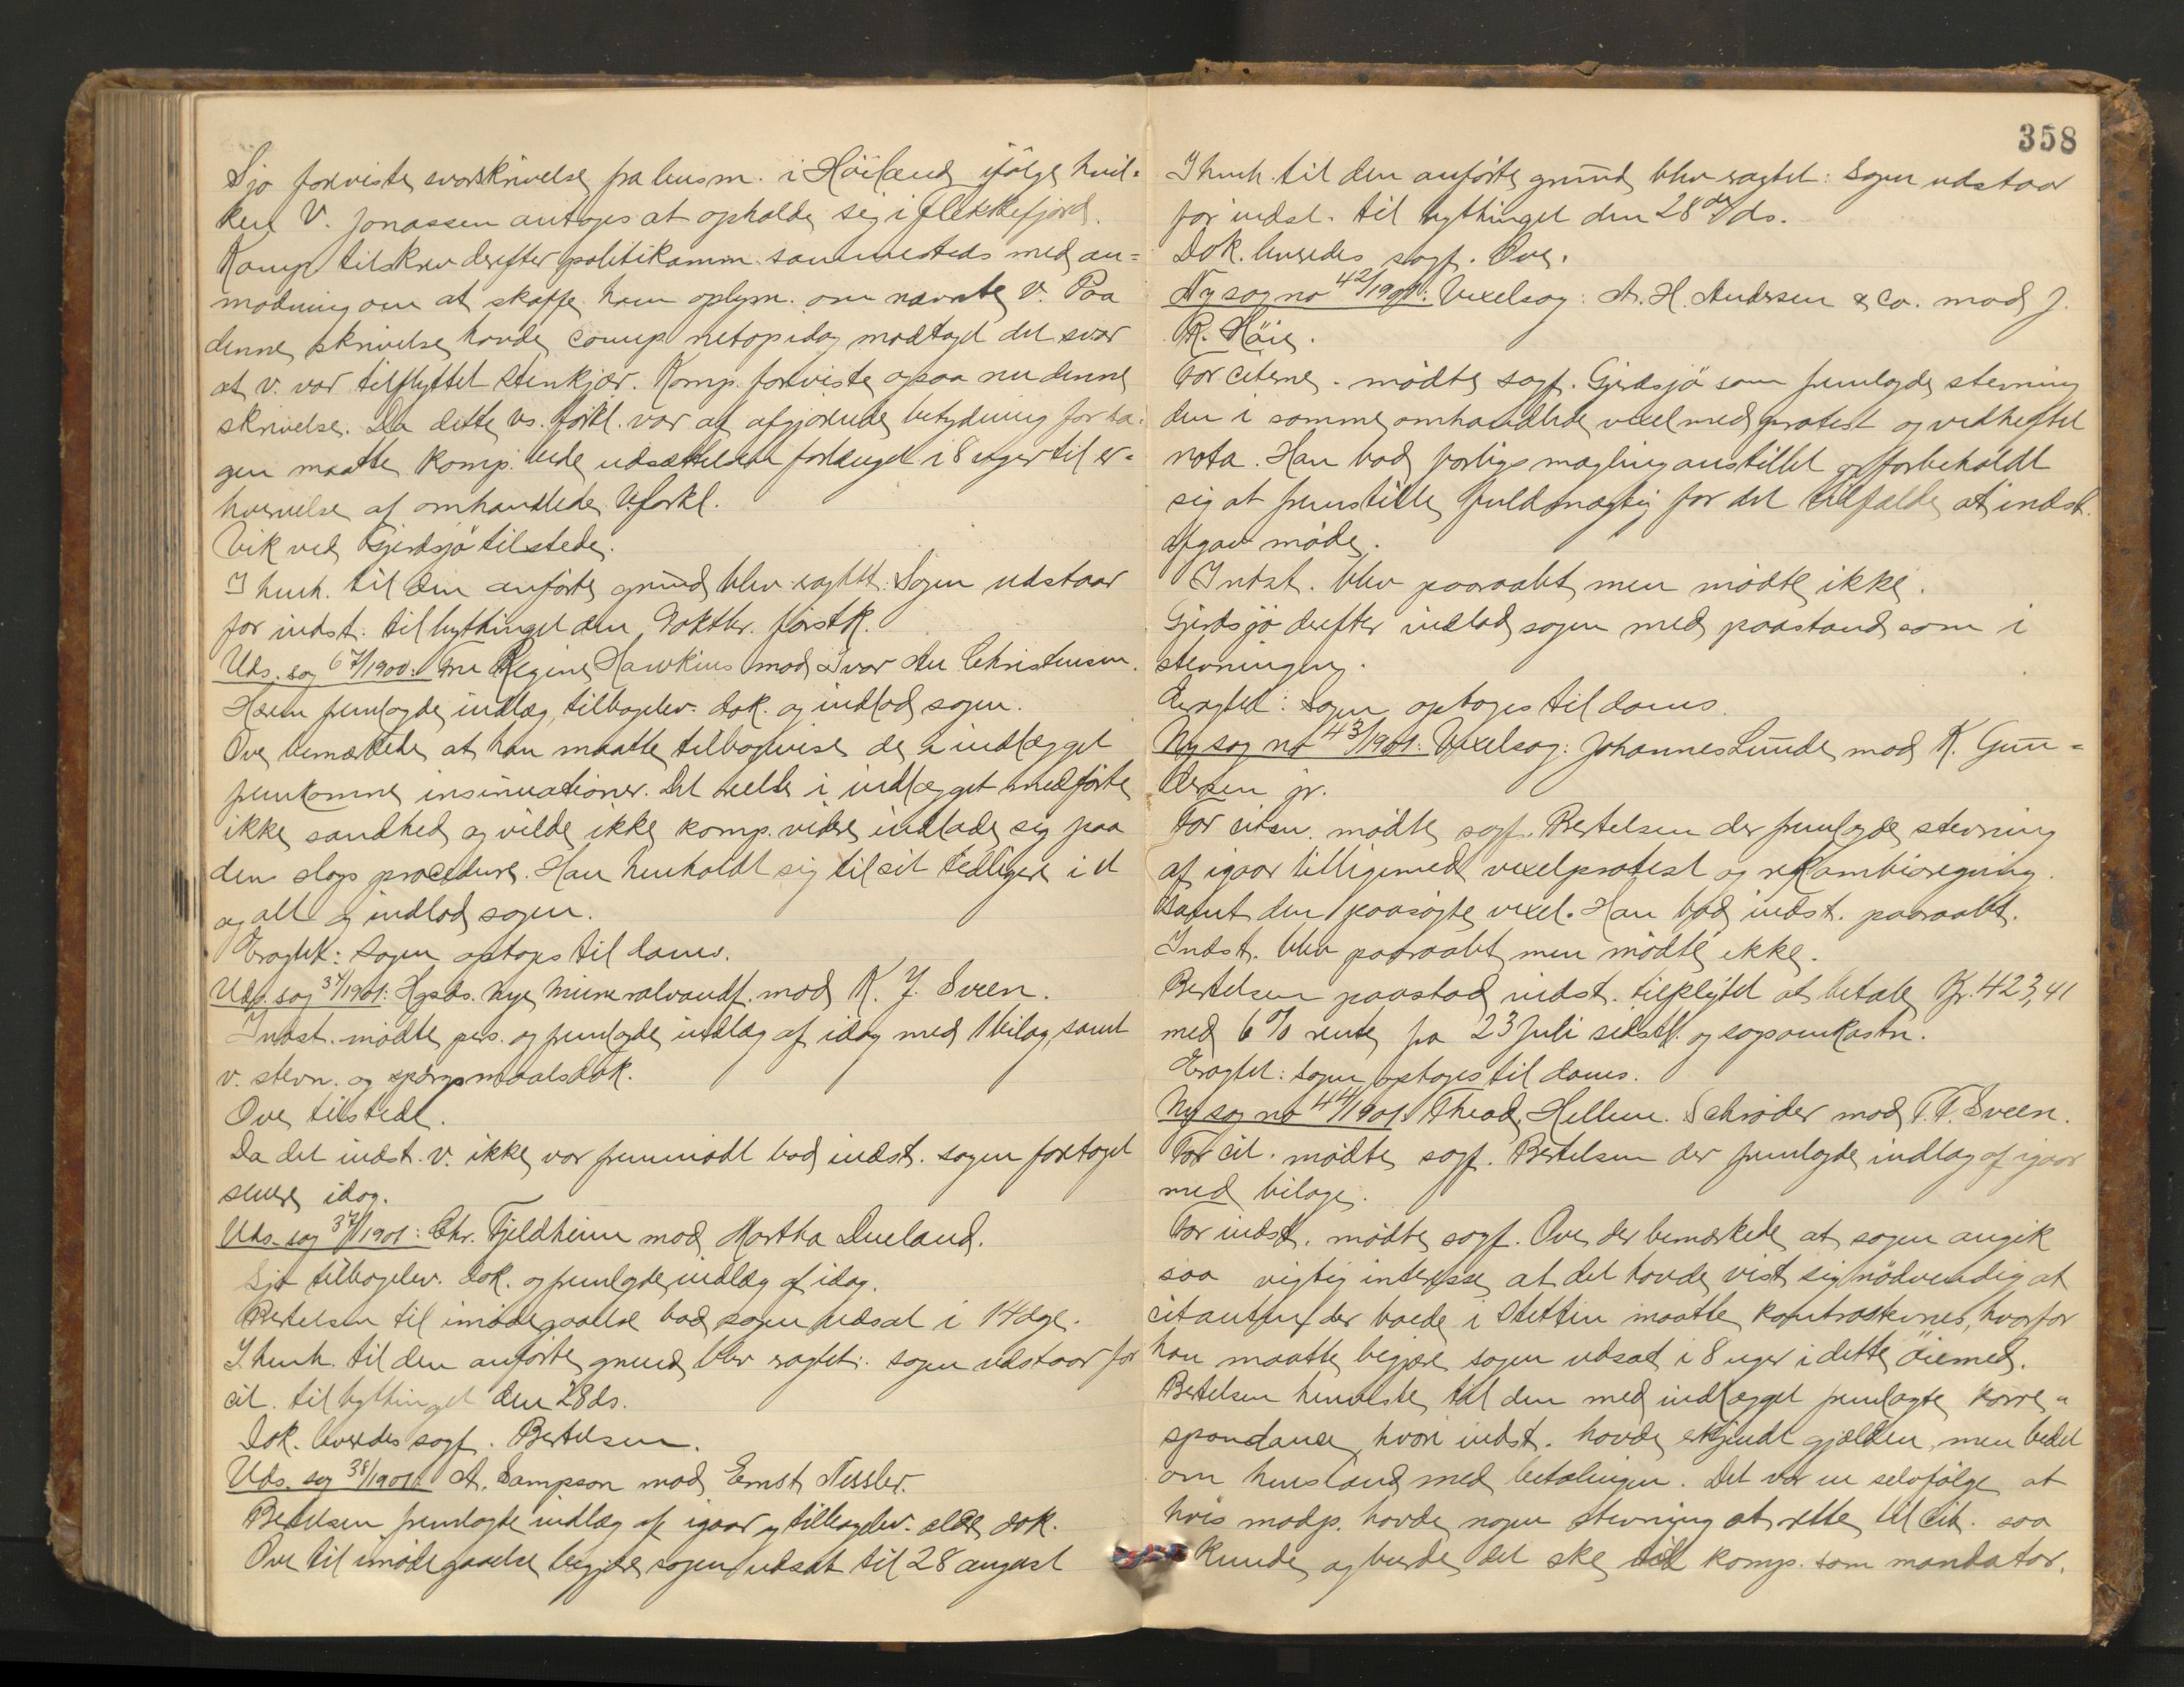 Sjo foreviste svarskrivelse fra lensm. i Höiland ifölge hvil-
ken V. Jonassen antoges at opholde sig i Flekkefjord.
Komp tilskrev derefter politikamm. sammesteds med an-
modning om at skaffe ham oplysn. om nævnte V. Paa
denne skrivelse havde comp. netop idag modtaget det svar
at V. var tilflyttet Stenkjær. Komp. foreviste ogsaa nu denne
skrivelse. Da dette Vs. forkl. var af afgjörende betydning for sa-
gen maatte komp. bede udsættelsen forlænget i 8 uger til er-
hvervelse af omhandlede V.forkl.
Vik ved Gjerdsjö tilstede.
I henh. til den anförte grund blev eragtet: Sagen udstaar
for indst. til bythinget den 9 oktbr. förstk.
Uds. sag 67/1900: Fru Regine Hawkins mod Ivar Au Christensen.
Hærem fremlagde indlæg, tilbagelev. dok. og indlod sagen.
Ove bemærkede at han maatte tilbagevise de i indlægget
fremkomne insinuationer. Det reelle i indlægget medförte
ikke sandhed og vilde ikke komp. videre indlade sig paa
den slags procedure. Han henholdt sig til sit tidligere i et
og alt og indlod sagen.
Eragtet: Sagen optages til doms.
Uds. sag 34/1901: Hgsds. nye Mineralvandf. mod K. J. Sveen.
Indst. mödte pers. og fremlagde indlæg af idag med 1 bilag, samt
v. stevn. og spörgsmaalsdok.
Ove tilstede.
Da det indst. v. ikke var fremmödt bad indst. sagen foretaget
senere idag.
Uds. sag 37/1901: Chr. Fjeldheim mod Martha Dueland.
Sjo tilbagelev. dok. og fremlagde indlæg af idag.
Bertelsen til imödegaaelse bad sagen udsat i 14 dage.
I henh. til den anförte grund blev eragtet: sagen udstaar for
cit. til bythinget den 28 ds.
Dok. leveredes sagf. Bertelsen.
Uds. sag 38/1901: A. Sampson mod Ernst Nessler.
Bertelsen fremlagde indlæg af igaar og tilbagelev. ældre dok.
Ove til imödegaaelse begjærte sagen udsat til 28 august
358
I henh. til den anförte grund blev eragtet: Sagen udstaar
for indst. til bythinget den 28de ds.
Dok. leveredes sagf. Ove.
Ny sag no 42/1901: Vexelsag: A. H. Andersen & Co. mod J.
R. Höie.
For citerne. mödte sagf. Gjerdsjö som fremlagde stevning
den i samme omhandlede vexel med protest og vedheftet
nota. Han bad forligsmægling anstillet og forbeholdt
sig at fremstille fuldmægtig for det tilfælde at indst.
afgav möde.
Indst. blev paaraabt men mödte ikke.
Gjerdsjö derefter indlod sagen med paastand som i
stevningen.
Eragtet: Sagen optages til doms.
Ny sag no 43/1901: Vexelsag: Johannes Lunde mod K. Gun-
dersen jr.
For citn. mödte sagf. Bertelsen der fremlagde stevning
af igaar tilligemed vexelprotest og rekambioregning.
samt den paasögte vexel. Han bad indst. paaraabt.
Indst. blev paaraabt men mödte ikke.
Bertelsen paastod indst. tilpligtet at betale Kr. 423,41
med 6 % rente fra 23 Juli sidstl. og sagsomkostn.
Eragtet: Sagen optages til doms.
Ny sag no 44/1901: Theod. Hellm. Schröder mod T. T. Sveen.
For cit. mödte sagf. Bertelsen der fremlagde indlæg af igaar
med bilage.
For indst. mödte sagf. Ove der bemærkede at sagen angik
saa vigtig interesse at det havde vist sig nödvendig at
citanten der boede i Stettin maatte kontrastevnes, hvorfor
han maatte begjære sagen udsat i 8 uger i dette öiemed.
Bertelsen henviste til den med indlægget fremlagte korre-
spondance, hvori indst. havde erkjendt gjælden, men bedet
om henstand med betalingen. Det var en selvfölge at
hvis modp. havde nogen stevning at rette til cit. saa
kunde og burde det ske til komp. som mandatar.